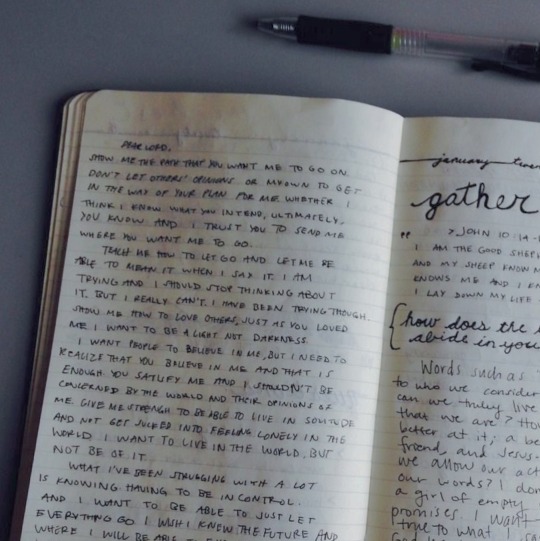 DEAR LORD,
SHOW ME THE PATH THAT YOU WANT ME TO GO ON.
DON'T LET OTHERS' OPINIONS OR MY OWN TO GET
IN THE WAY OF YOUR PLAN FOR ME. WHETHER I
THINK I KNOW WHAT YOU INTEND, ULTIMATELY,
YOU KNOW AND I TRUST YOU TO SEND ME
WHERE YOU WANT ME TO GO.
TEACH ME HOW TO LET GO AND LET ME BE
ABLE TO MEAN IT WHEN I SAY IT. I AM
TRYING AND I SHOULD STOP THINKING ABOUT
IT. BUT I REALLY CAN'T. I HAVE BEEN TRYING THOUGH.
SHOW ME HOW TO LOVE OTHERS, JUST AS YOU LOVED
ME. I WANT TO BE A LIGHT NOT DARKNESS.
I WANT PEOPLE TO BELIEVE IN ME, BUT I NEED TO
REALIZE THAT YOU BELIEVE IN ME AND THAT IS
ENOUGH. YOU SATISFY ME AND I SHOULDN'T BE
CONCERNED BY THE WORLD AND THEIR OPINIONS OF
ME. GIVE ME STRENGTH TO BE ABLE TO LIVE IN SOLITUDE
AND NOT GET SUCKED INTO FEELING LONELY IN THE
WORLD. I WANT TO LIVE IN THE WORLD, BUT
NOT BE OF IT.
WHAT I'VE BEEN STRUGGLING WITH A LOT
IS KNOWING HAVING TO BE IN CONTROL.
AND I WANT TO BE ABLE TO JUST LET
EVERYTHING GO. I WISH I KNEW THE FUTURE AND
WHERE I WILL BE ABLE TO
january twen
gather
> JOHN 10:14-
" I AM THE GOOD SHEP
AND MY SHEEP KNOW M
KNOWS ME AND I KN
I LAY DOWN MY LIFE
{ how does the
abide in you
Words such as
to who we consider
can we truly live
that we are? How
better at it; a be
friend, and Jesus-
we allow our act
our words? I don
a girl of empty
promises. I want
true to what I sa